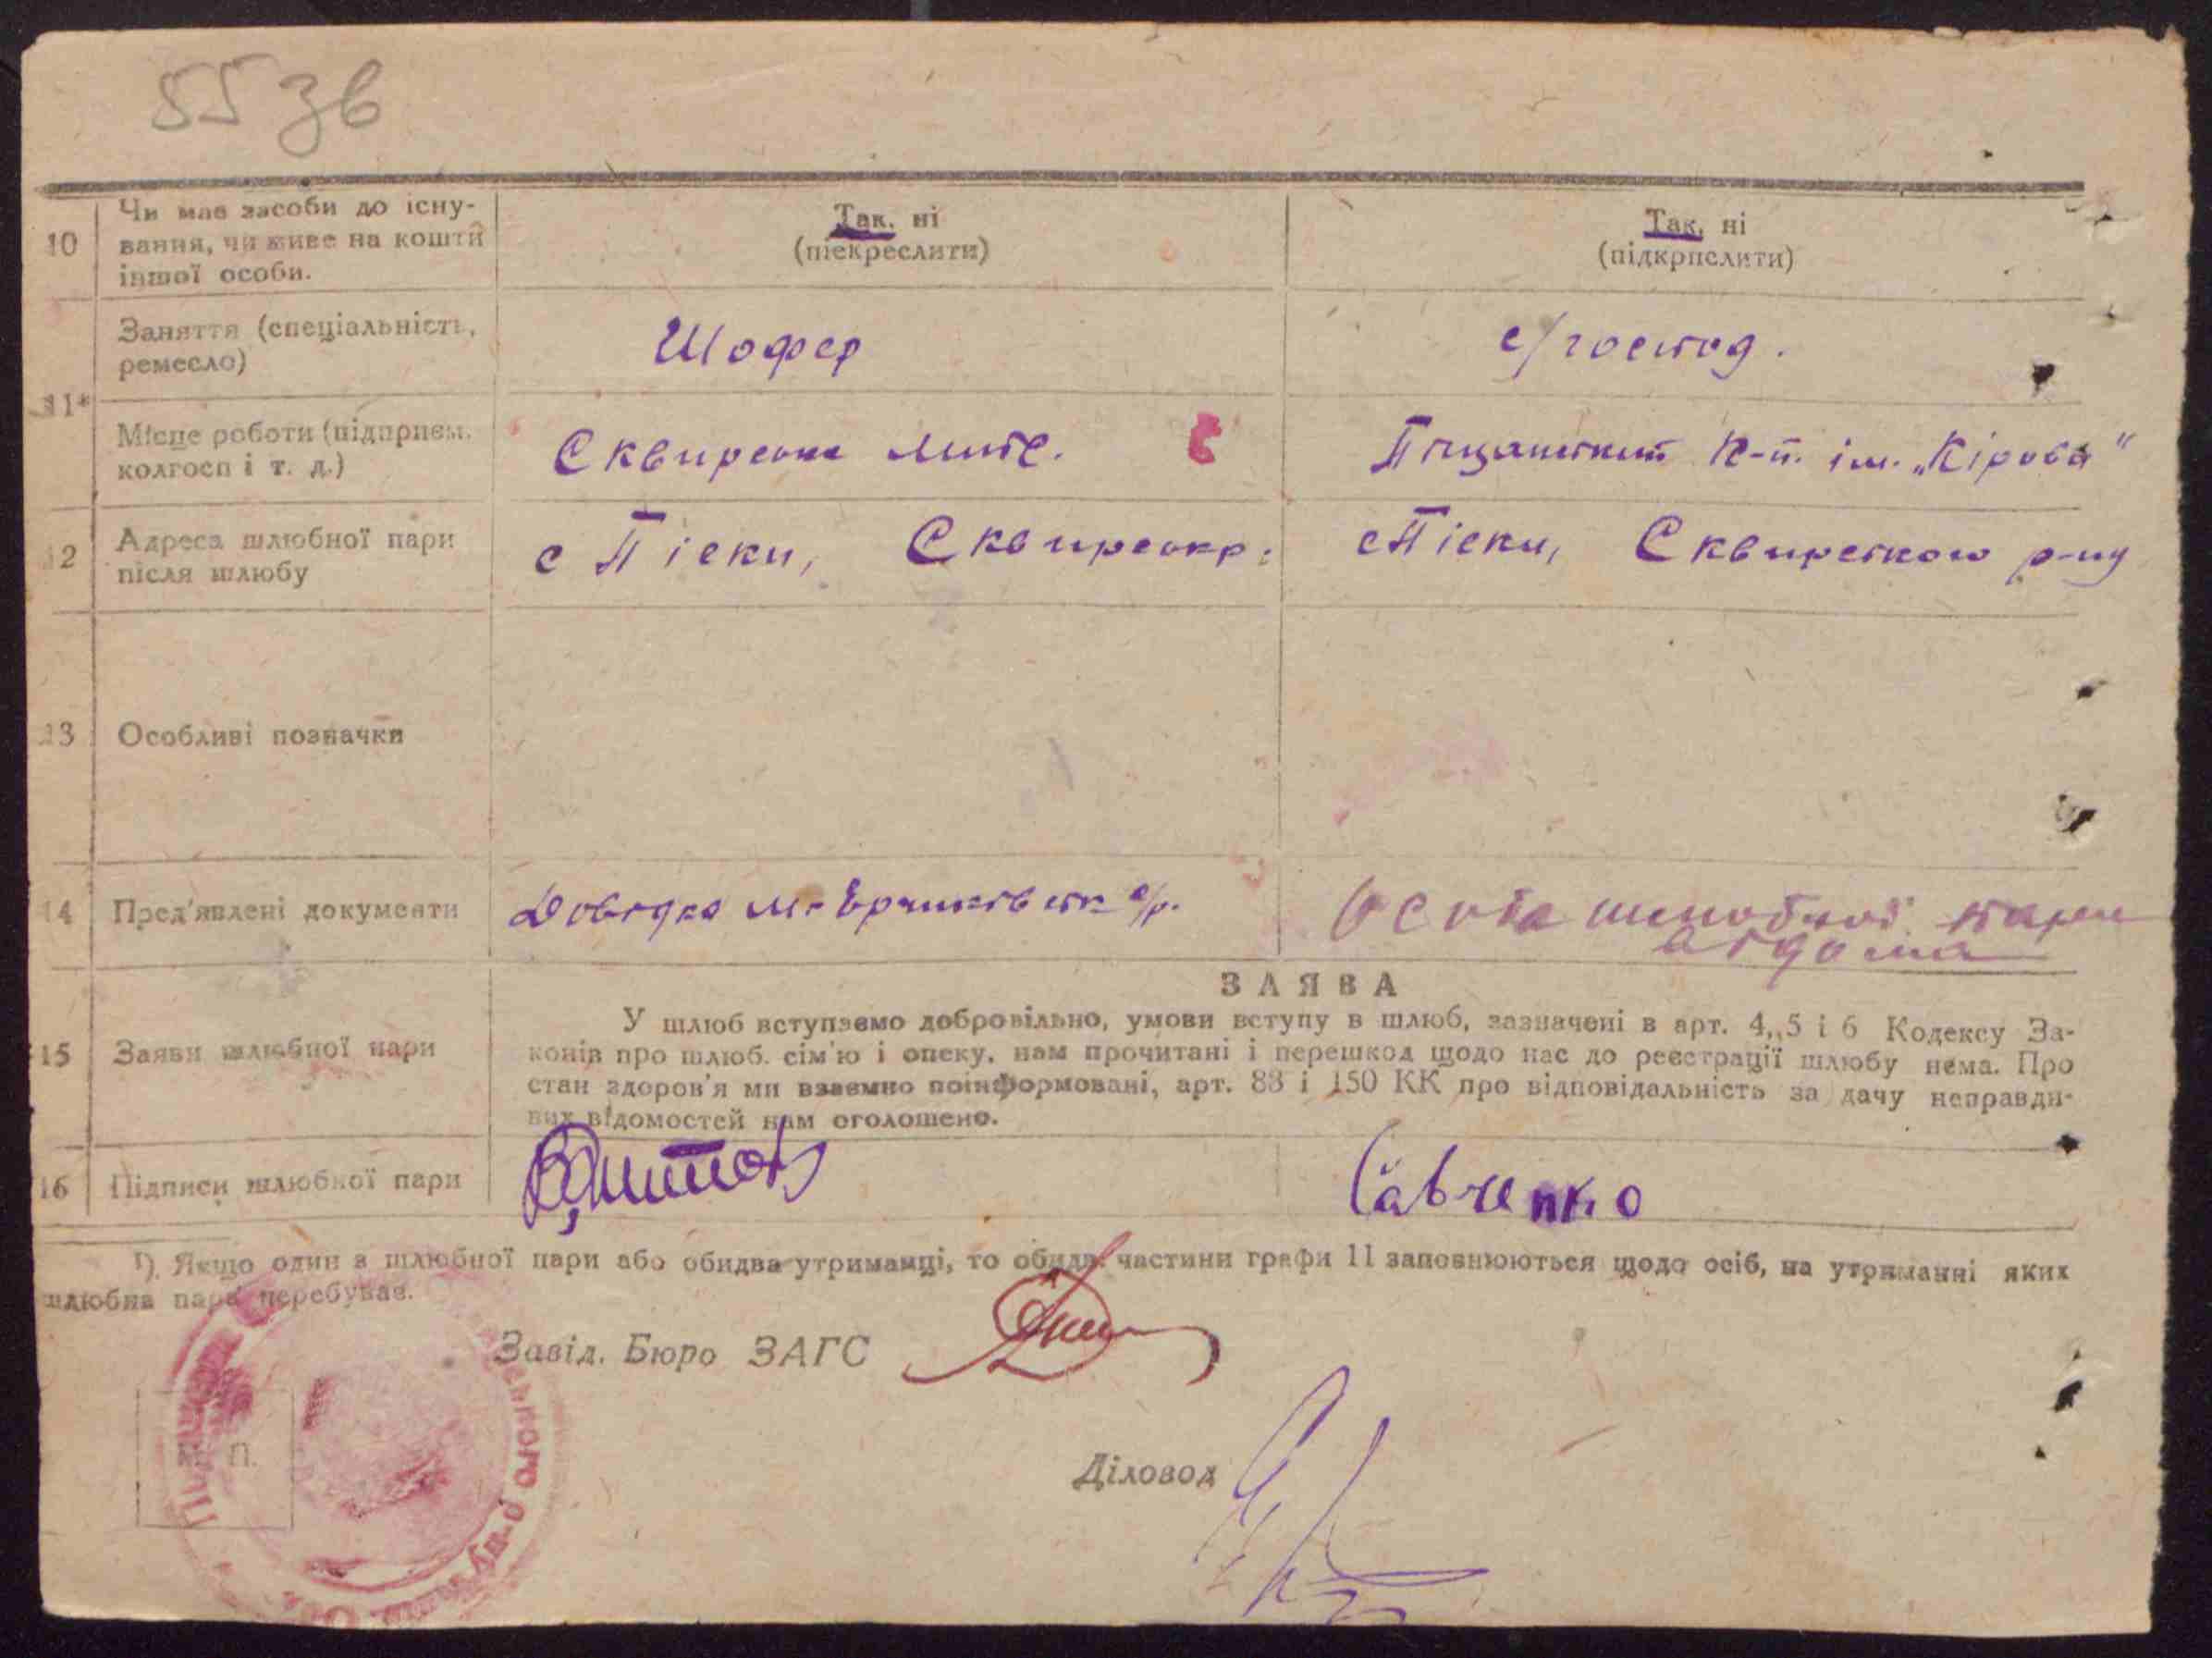 55 зв
10 Чи має засоби до існу-
вання, чи живе на кошти
іншої особи.
Так, ні
(піекреслити)
Так, ні
(підкрпслити)
11*
Заняття (спеціальність,
ремесло)
Шофер
с/господ.
Місце роботи (підприєм.
колгосп і т. д.)
Сквирська
К-п. ім. „Кірова"
12 Адреса шлюбної пари
після шлюбу
с Піски,
с Піски, Сквирського р-ну
13 Особливі позначки
14 Пред'явлені документи
Довідка с/р.
Особа шлюбної пари
відома
ЗАЯВА
15 Заяви шлюбної пари
У шлюб вступаємо добровільно, умови вступу в шлюб, зазначені в арт. 4, 5 і 6 Кодексу За-
конів про шлюб. сім'ю і опеку, нам прочитані і перешкод щодо нас до реєстрації шлюбу нема. Про
стан здоров'я ми взаємно поінформовані, арт. 83 і 150 КК про відповідальність за дачу неправди-
вих відомостей нам оголошено.
16 Підписи шлюбної пари
Савченко
1). Якщо один з шлюбної пари або обидва утриманці, то обидві частини графи 11 заповнюються щодо осіб, на утриманні яких
шлюбна пара перебуває.
Завід. Бюро ЗАГС
М. П.
Діловод